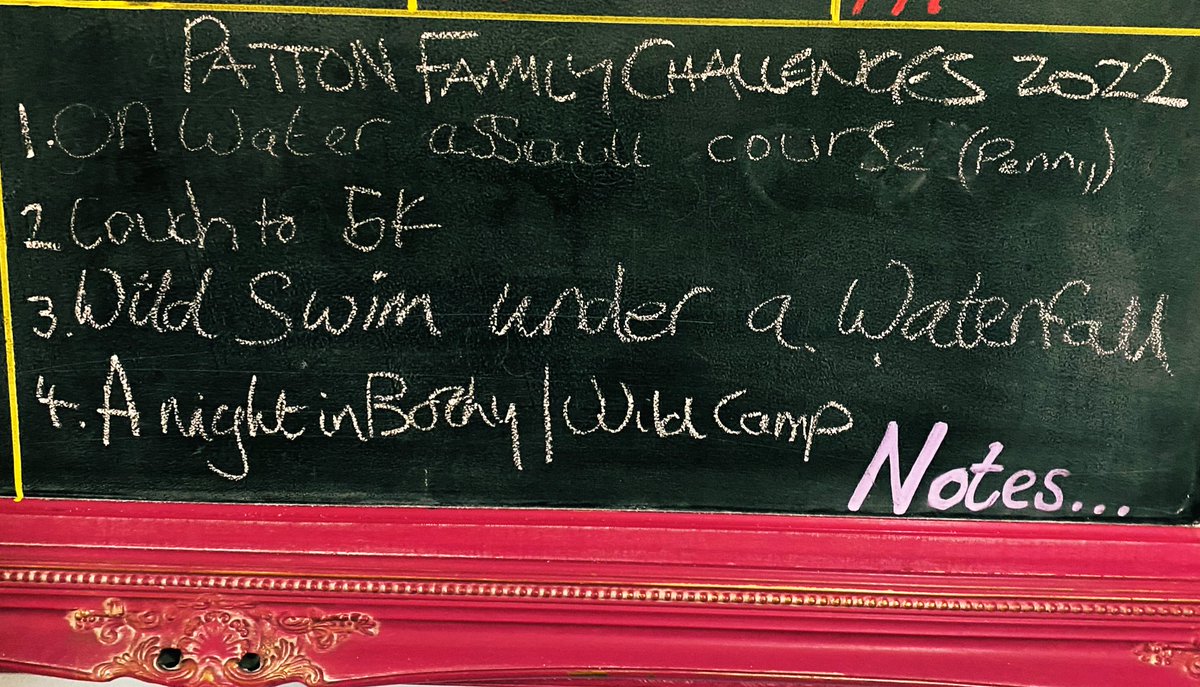 PATTON FAMILY CHALLENGES 2022
1. On Water assault course (Penny)
2 Couch to 5K
3. Wild Swim under a Waterfall
4. A night in Bothy | Wild Camp
Notes...